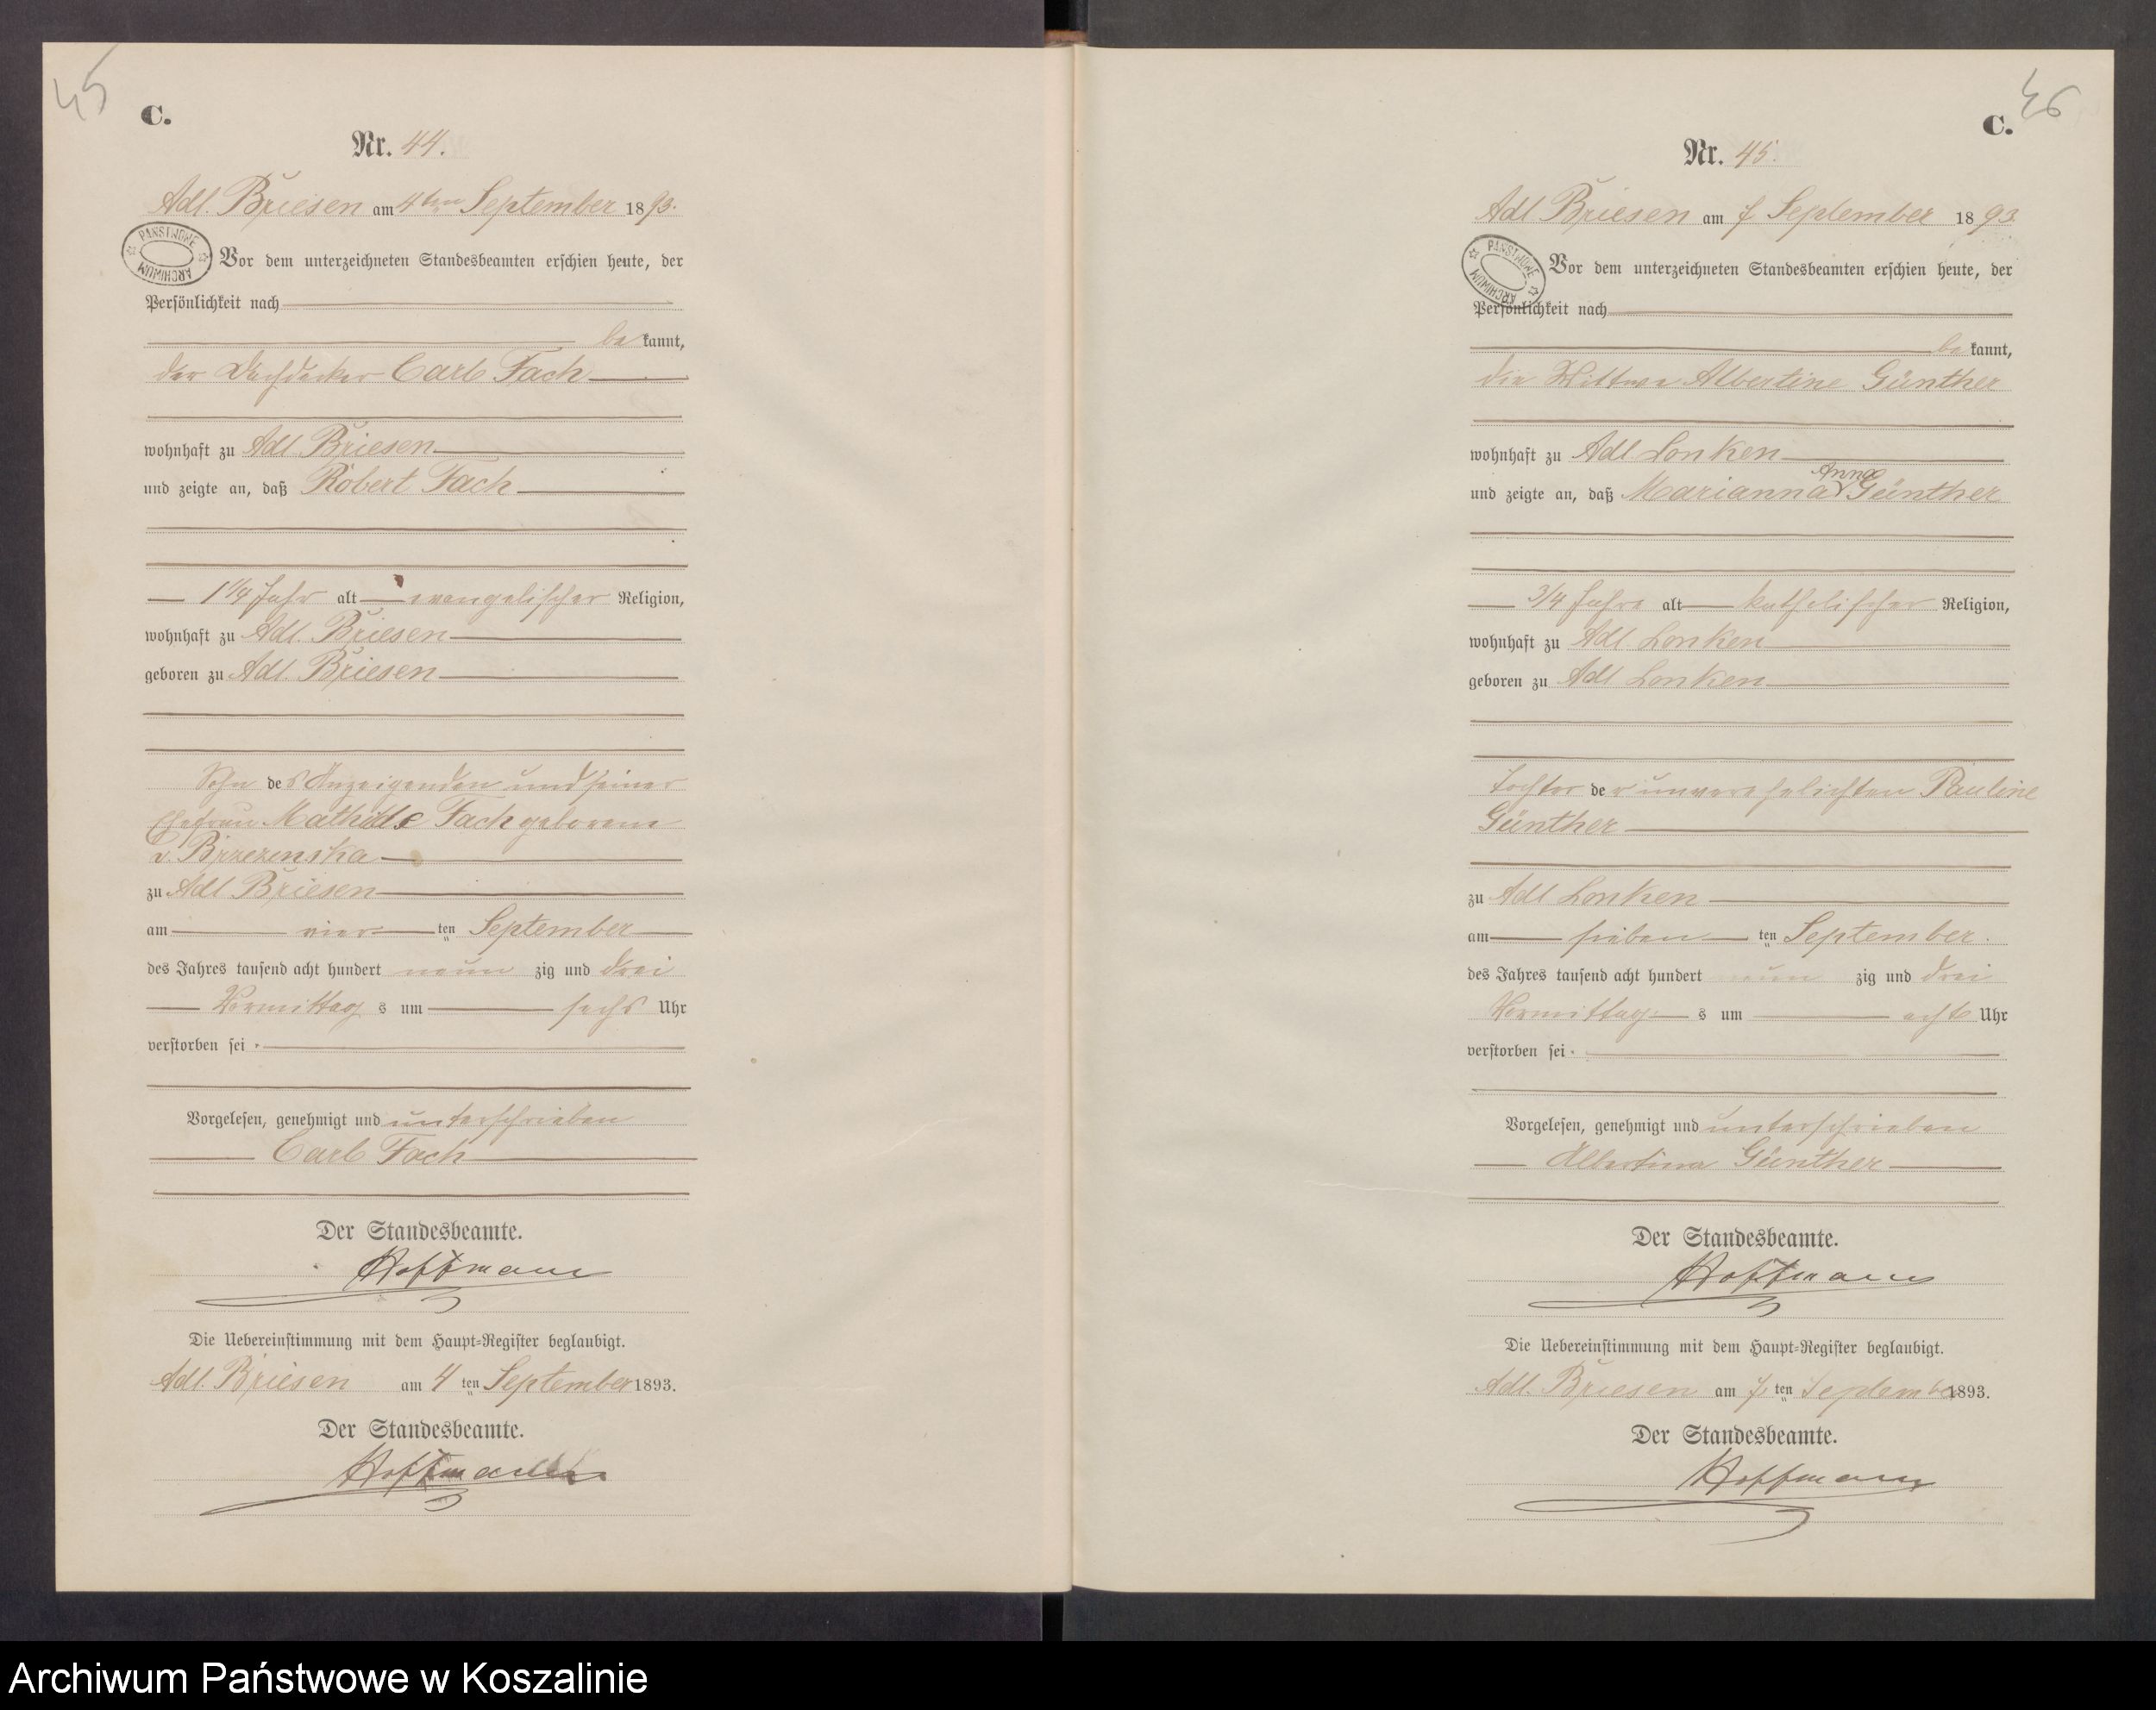 45
C.
Nr. 44.
Adl. Briesen am 4ten September 1893.
PAŃSTWOWE ARCHIWUM
Vor dem unterzeichneten Standesbeamten erschien heute, der
Persönlichkeit nach
bekannt,
der Dachdecker Carl Fach
wohnhaft zu Adl Briesen
und zeigte an, daß Robert Fach
1 1/4 Jahr alt evangelischer Religion,
wohnhaft zu Adl. Briesen
geboren zu Adl. Briesen
Sohn des Anzeigenden und seiner
Ehefrau Mathilde Fach geborene
v. Brzezinska
zu Adl Briesen
am vierten September
des Jahres tausend acht hundert neunzig und drei
Vormittags um sechs Uhr
verstorben sei.
Vorgelesen, genehmigt und unterschrieben
Carl Fach
Der Standesbeamte.
Hoffmann
Die Uebereinstimmung mit dem Haupt-Register beglaubigt.
Adl. Briesen am 4ten September 1893.
Der Standesbeamte.
Hoffmann
46
C.
Nr. 45.
Adl Briesen am 7 September 1893
PAŃSTWOWE ARCHIWUM
Vor dem unterzeichneten Standesbeamten erschien heute, der
Persönlichkeit nach
bekannt,
die Wittwe Albertine Günther
wohnhaft zu Adl Lonken
Anna
und zeigte an, daß Marianna Günther
3/4 Jahre alt katholischer Religion,
wohnhaft zu Adl. Lonken
geboren zu Adl Lonken
Tochter der unverehelichten Pauline
Günther
zu Adl Lonken
am siebenten September.
des Jahres tausend acht hundert neunzig und drei
Vormittags um acht Uhr
verstorben sei.
Vorgelesen, genehmigt und unterschrieben
Albertine Günther
Der Standesbeamte.
Hoffmann
Die Uebereinstimmung mit dem Haupt-Register beglaubigt.
Adl. Briesen am 7ten September 1893.
Der Standesbeamte.
Hoffmann
Archiwum Państwowe w Koszalinie